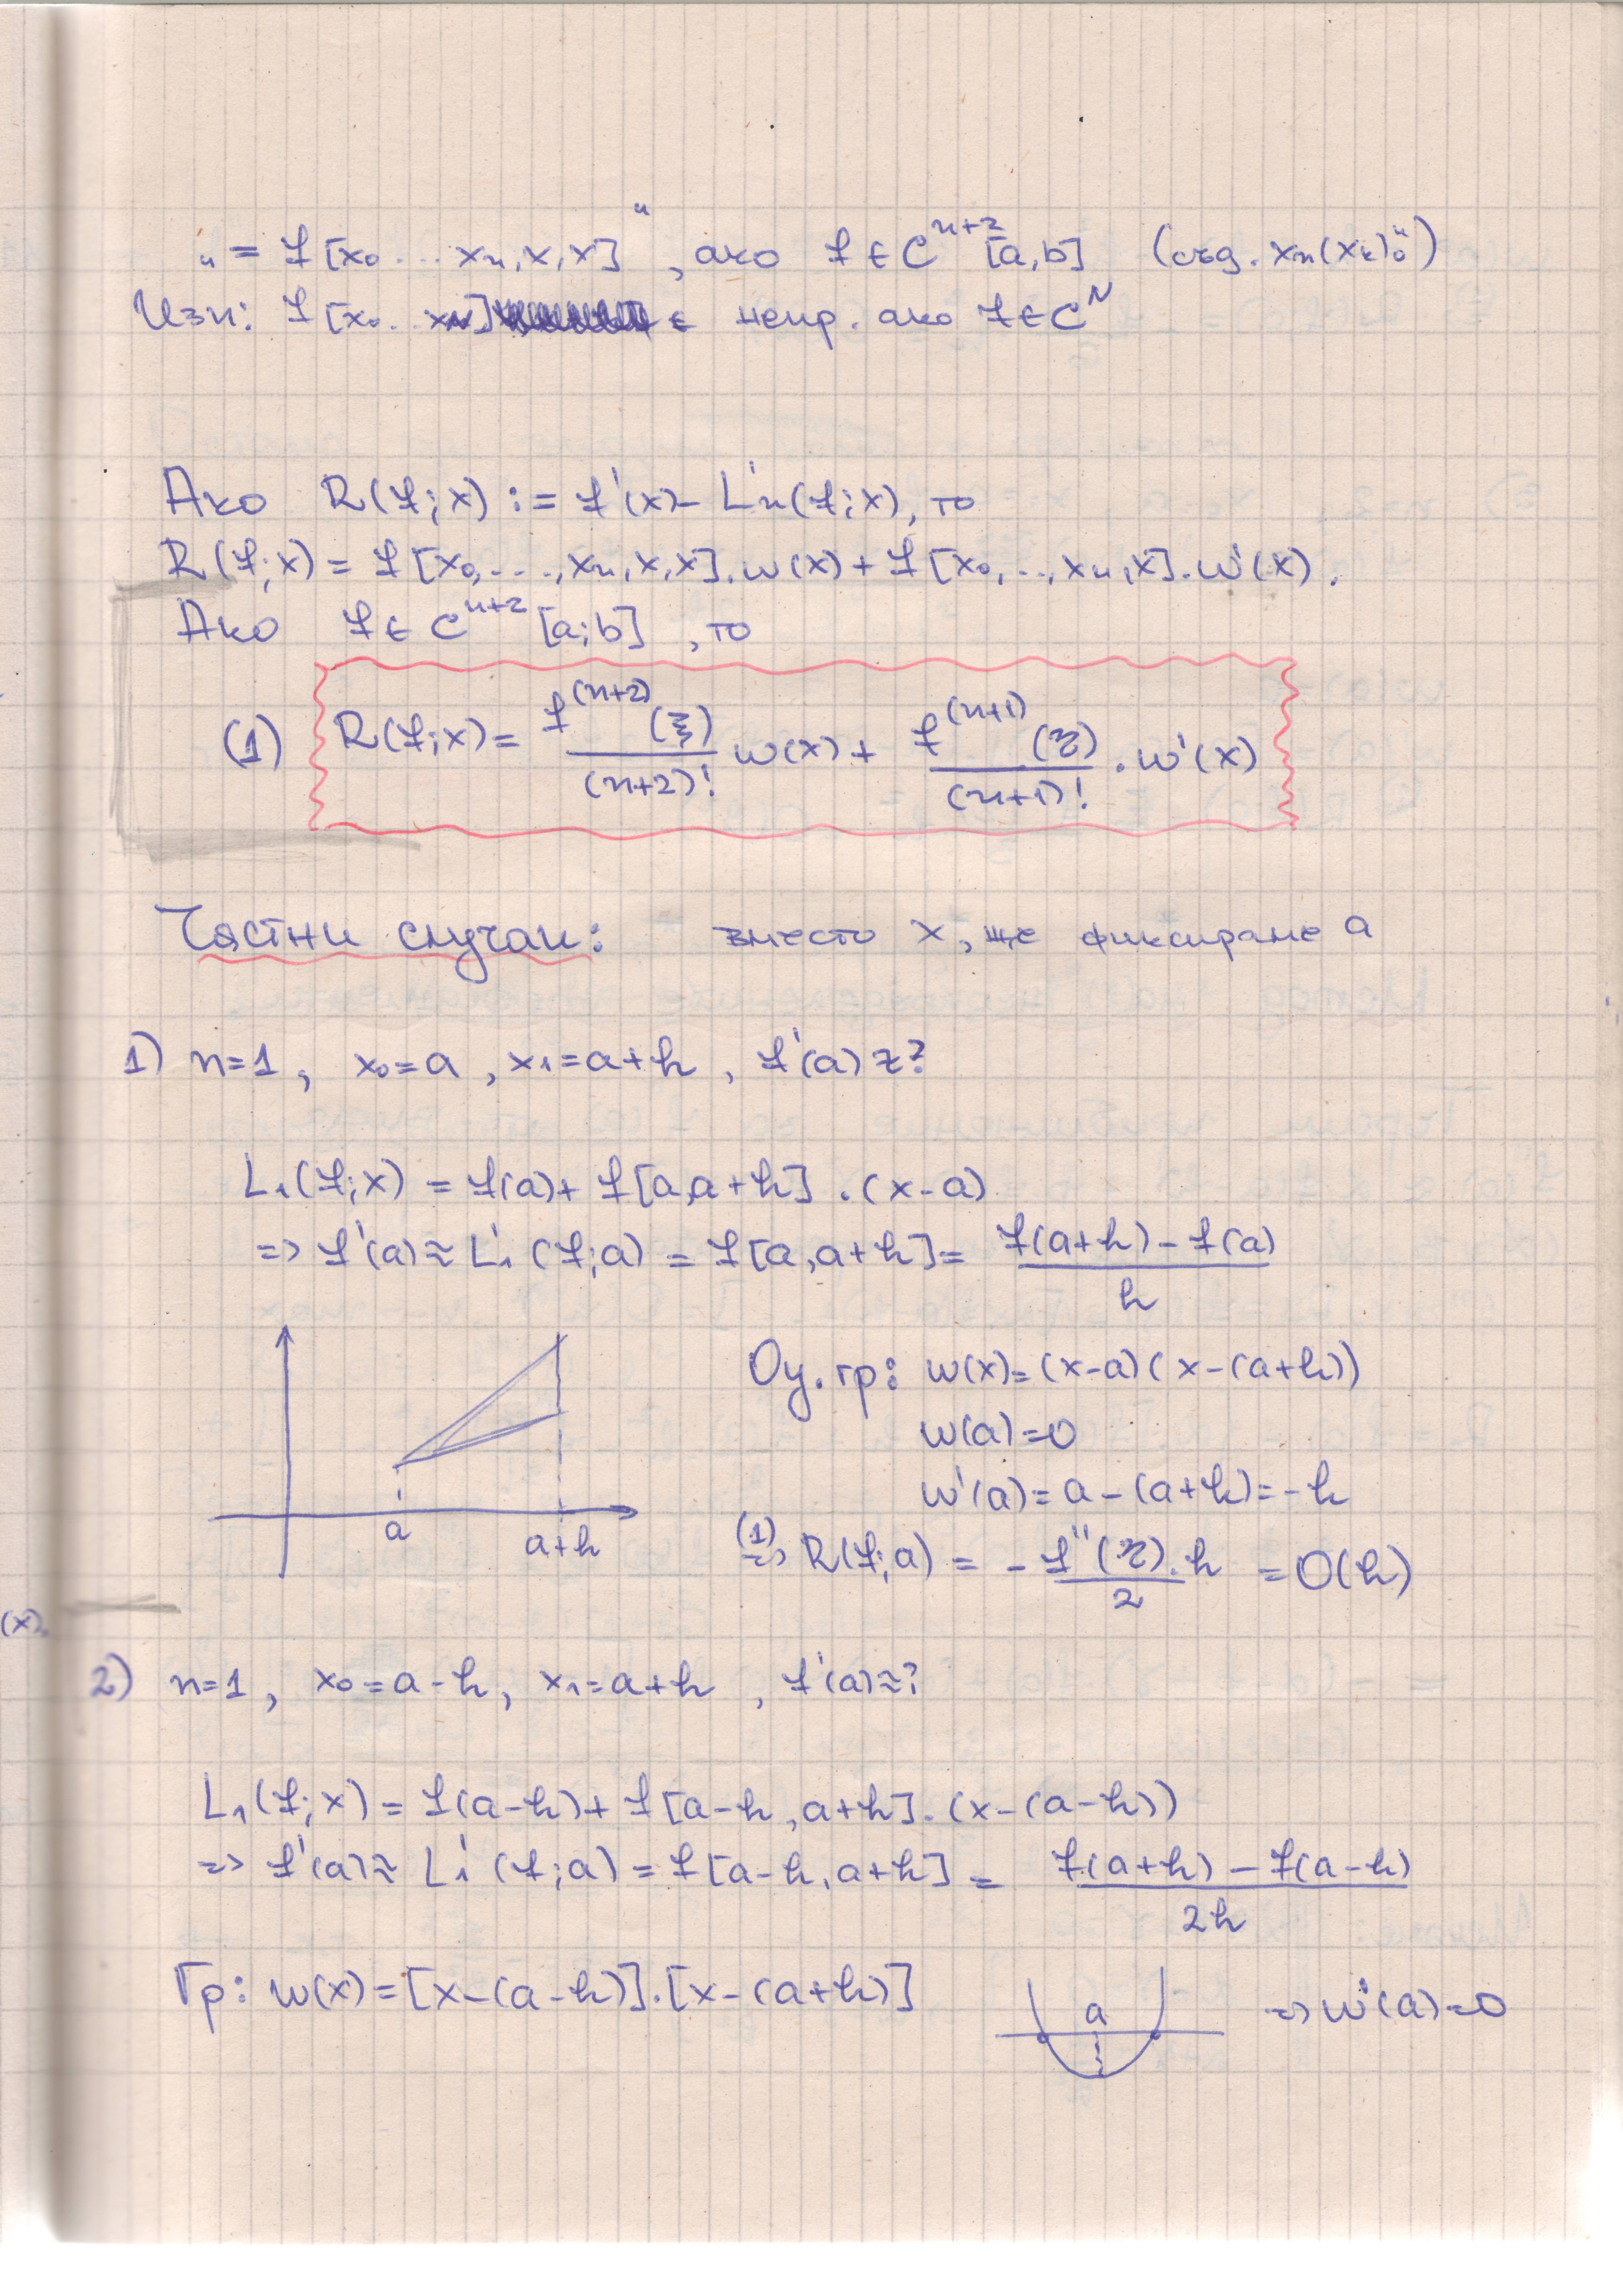 „= f[x₀...xₙ,x,x]“, ако f ∈ Cⁿ⁺²[a,b]
Изп: f[x₀...x_N] е непр. ако f ∈ C^N
Ако R(f;x) := f'(x) - L'ₙ(f;x), то
R(f;x) = f[x₀,...,xₙ,x,x].ω(x) + f[x₀,..,xₙ,x].ω'(x).
Ако f ∈ Cⁿ⁺²[a;b], то
(1) R(f;x) = f⁽ⁿ⁺²⁾(ξ)/(n+2)! ω(x) + f⁽ⁿ⁺¹⁾(η)/(n+1)! . ω'(x)
Частни случаи: вместо x, ще фиксираме a
1) n=1, x₀=a, x₁=a+h, f'(a)≈?
L₁(f;x) = f(a) + f[a,a+h] . (x-a)
=> f'(a) ≈ L'₁(f;a) = f[a,a+h] = (f(a+h) - f(a))/h
a
a+h
Оц. гр: ω(x) = (x-a)(x-(a+h))
ω(a)=0
ω'(a) = a-(a+h) = -h
(1) => R(f;a) = - f''(η)/2 . h = O(h)
(x).
2) n=1, x₀=a-h, x₁=a+h, f'(a)≈?
L₁(f;x) = f(a-h) + f[a-h,a+h].(x-(a-h))
=> f'(a) ≈ L'₁(f;a) = f[a-h,a+h] = (f(a+h) - f(a-h))/2h
Гр: ω(x) = [x-(a-h)].[x-(a+h)] a => ω'(a)=0